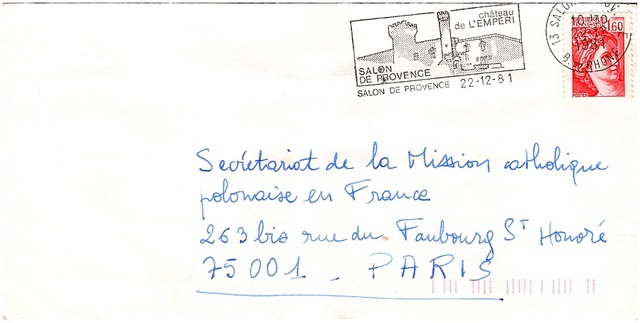 château
de L'EMPÉRI
SALON
DE PROVENCE
SALON DE PROVENCE 22-12-81
13 SALON
10H30
22-12
1981
B. DU RHONE
1,60
Secrétariat de la Mission catholique
polonaise en France
263 bis rue du Faubourg St Honoré
75001 - PARIS